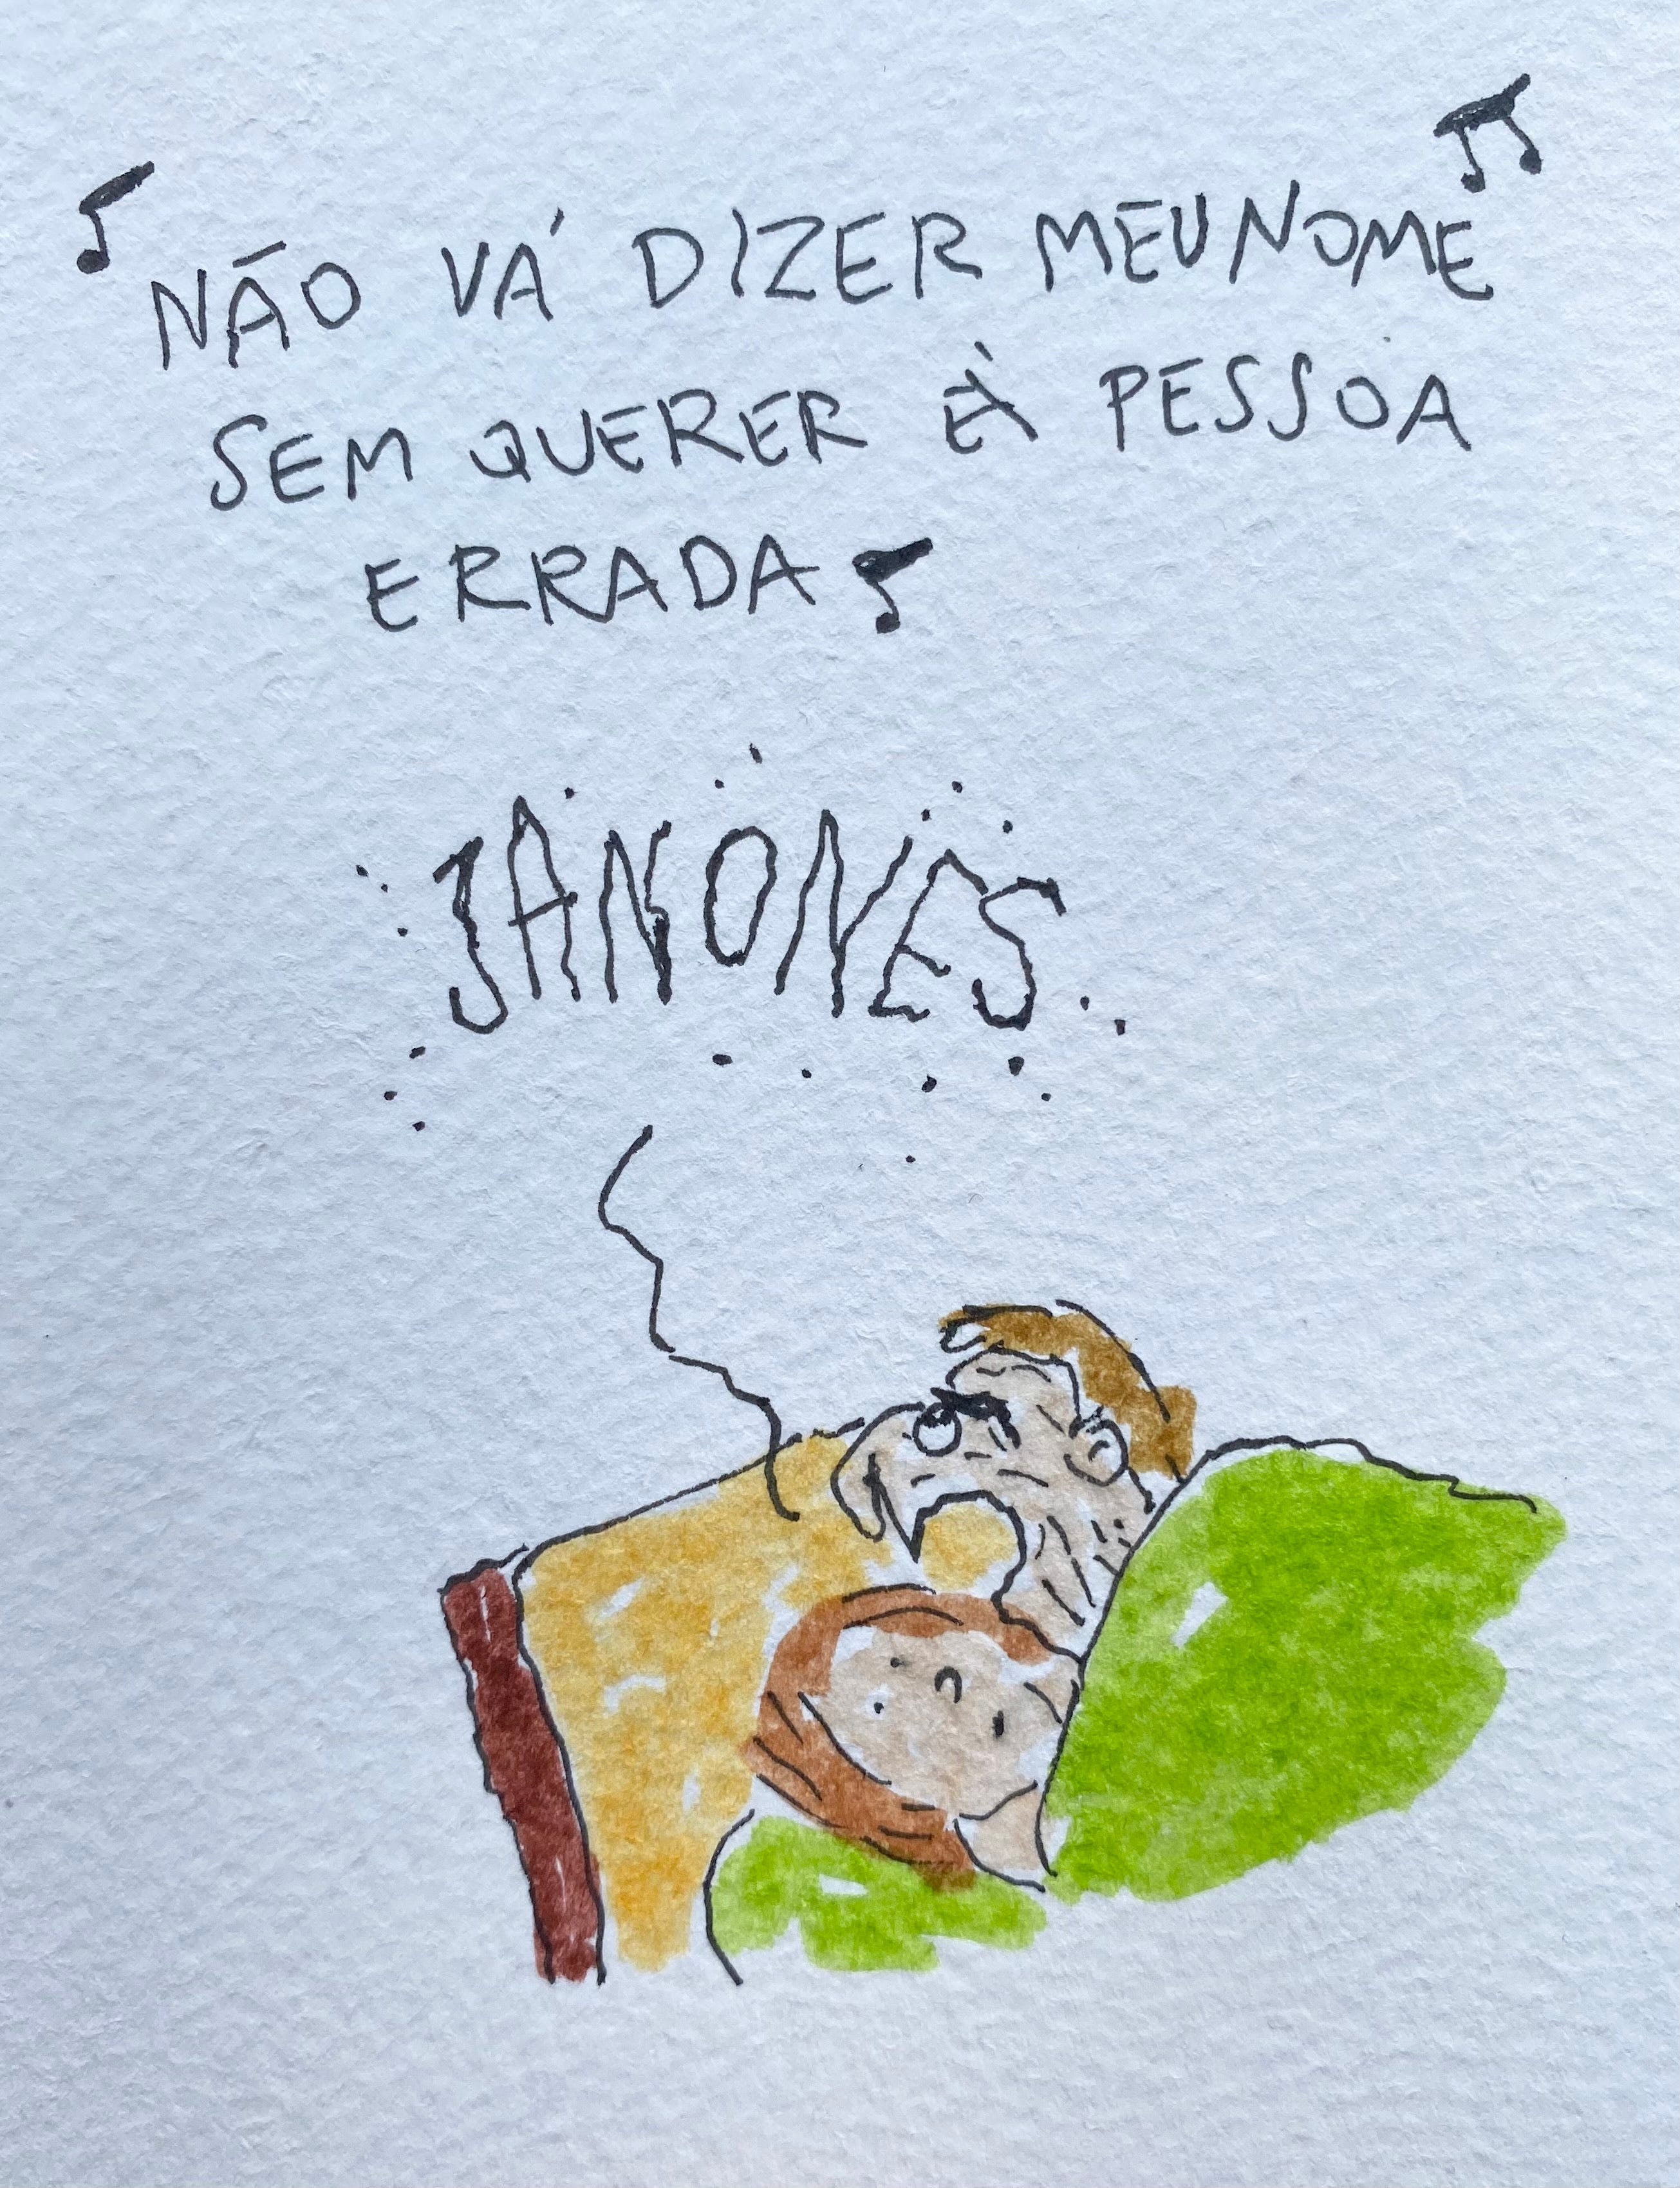 NÃO VÁ DIZER MEU NOME
SEM QUERER À PESSOA
ERRADA
JANONES..